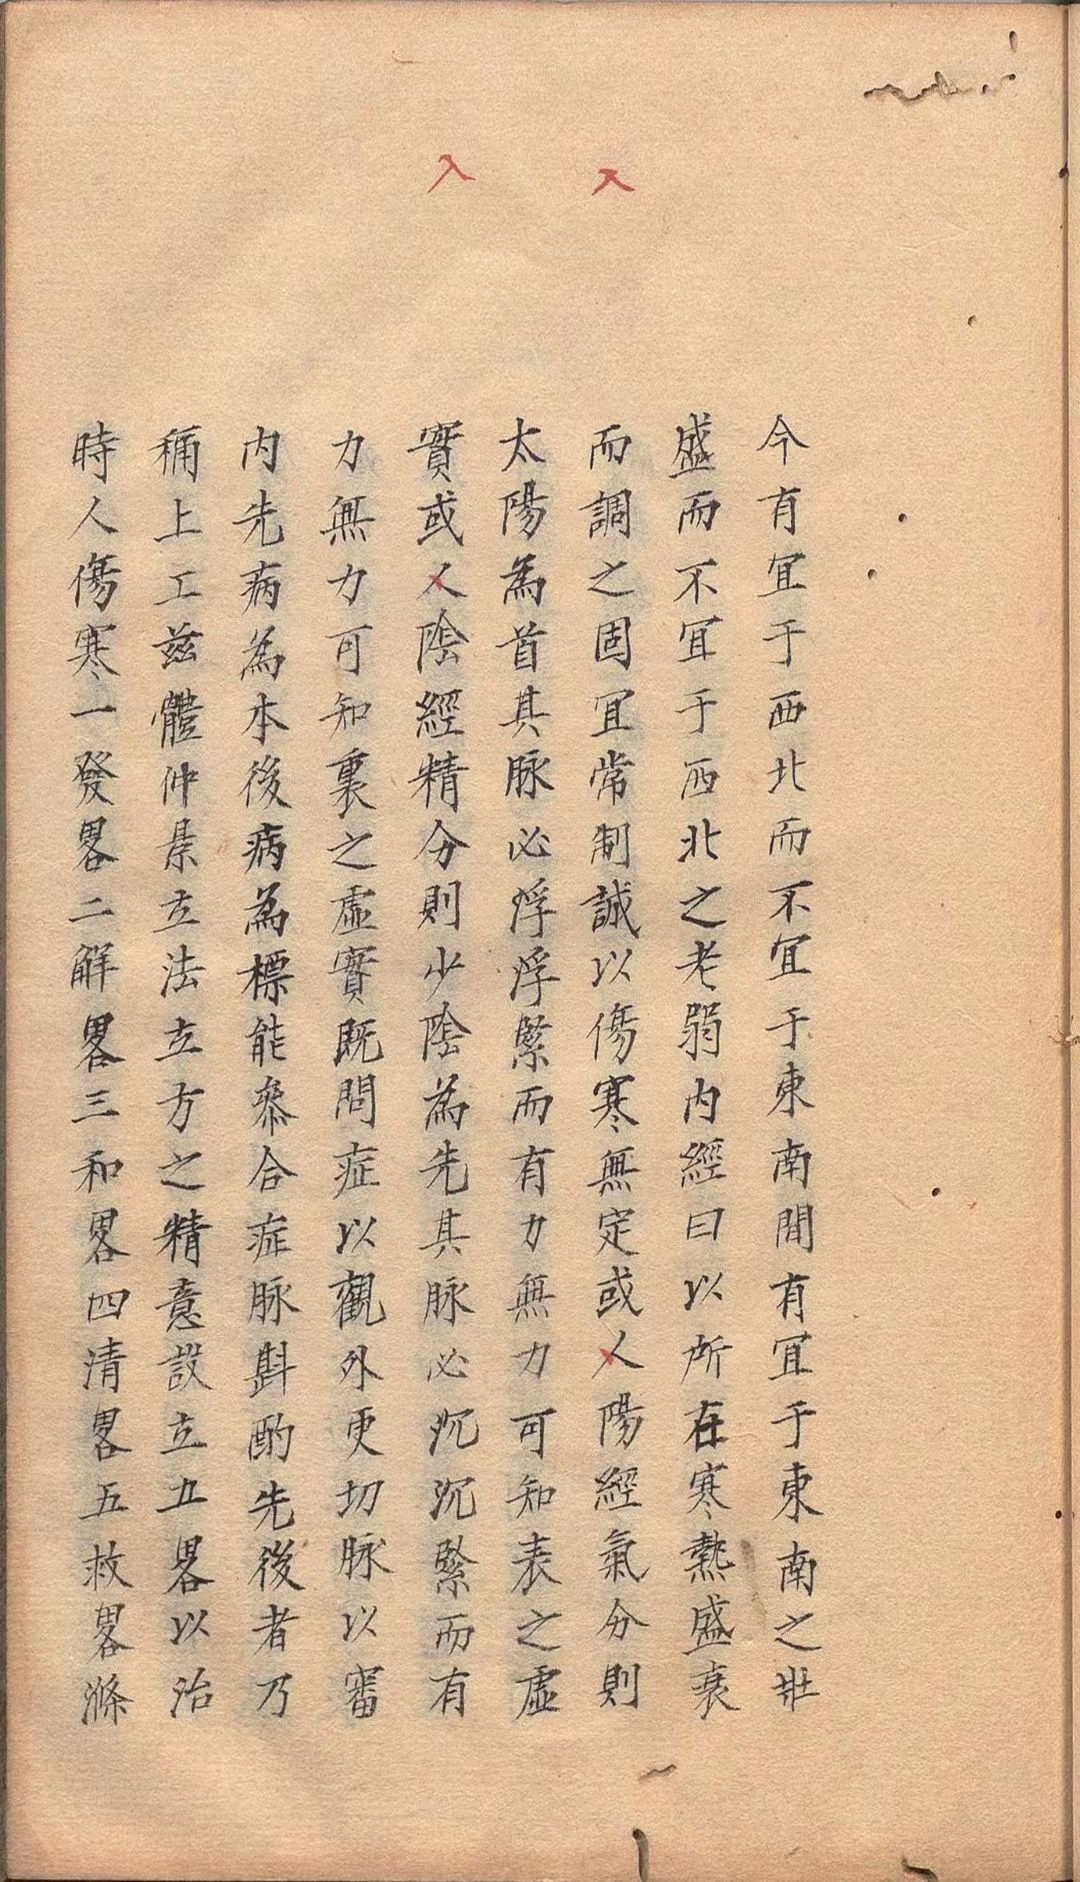 入
入
今有宜于西北而不宜于東南間有宜于東南之壯
盛而不宜于西北之老弱内經曰以所在寒熱盛衰
而調之固宜常制誠以傷寒無定或人陽經氣分則
太陽為首其脉必浮浮緊而有力無力可知表之虛
實或人陰經精分則少陰為先其脉必沉沉緊而有
力無力可知裏之虛實既問症以觀外更切脉以審
内先病為本後病為標能叅合症脉斟酌先後者乃
稱上工兹體仲景立法立方之精意設立五畧以治
時人傷寒一發畧二解畧三和畧四清畧五救畧滌